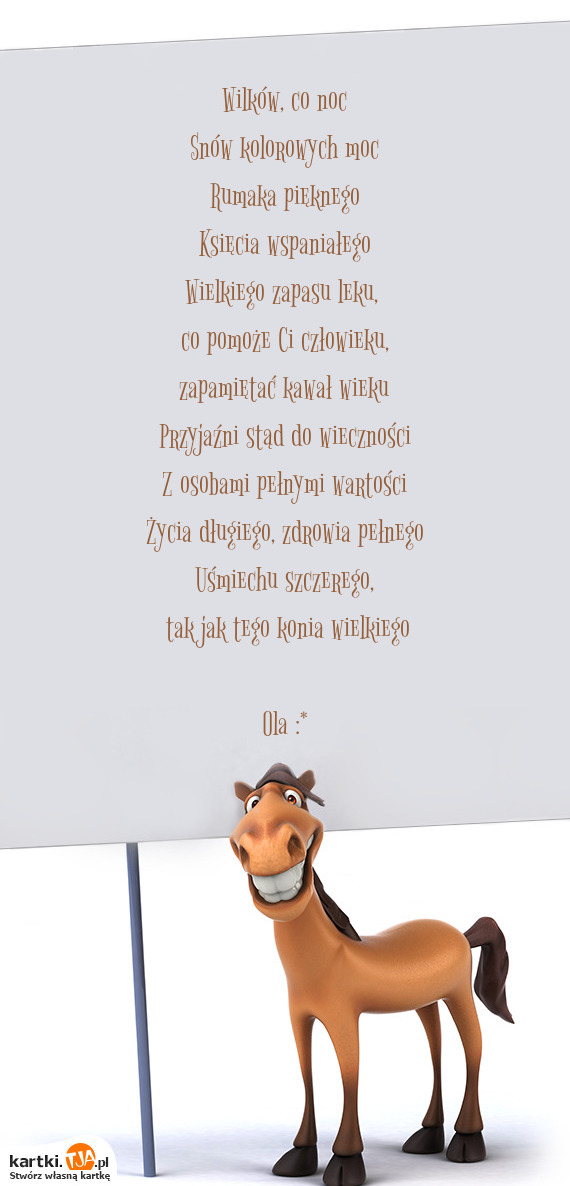 Wilków, co noc
Snów kolorowych moc
Rumaka pięknego
Księcia wspaniałego
Wielkiego zapasu leku,
co pomoże Ci człowieku,
zapamiętać kawał wieku
Przyjaźni stąd do wieczności
Z osobami pełnymi wartości
Życia długiego, zdrowia pełnego
Uśmiechu szczerego,
tak jak tego konia wielkiego
Ola :*
kartki.TJA.pl
Stwórz własną kartkę